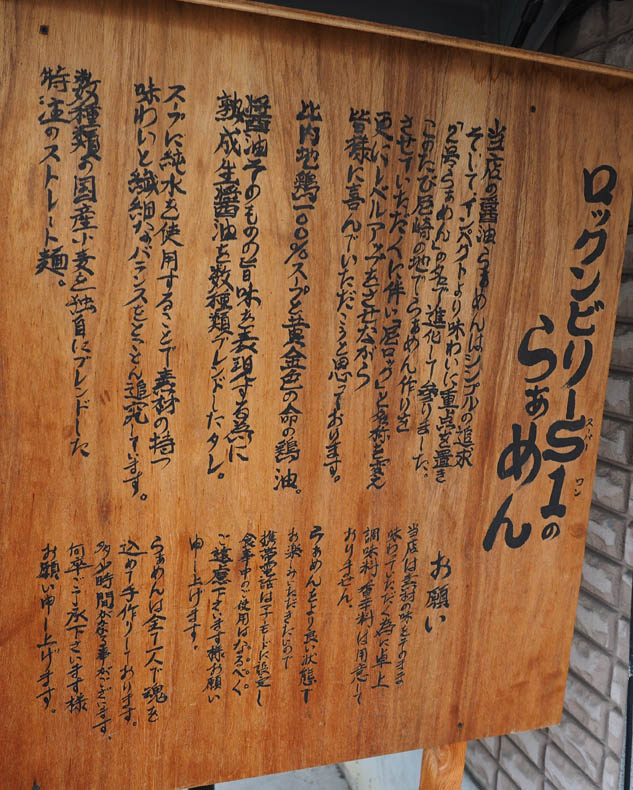 ロックンビリーS1の
スーパー ワン
らぁめん
当店の醤油らぁめんはシンプルの追求
そしてインパクトより味わいに重点を置き
「2号らぁめん」の名で進化して参りました。
このたび尼崎の地でらぁめん作りを
させていただくに伴い「尼ロック」と名称を変え
更にレベルアップをさせながら
皆様に喜んでいただこうと思っております。
比内地鶏100%スープと黄金色の命の鶏油。
醤油そのものの旨味を表現する為に
熟成生醤油を数種類ブレンドしたタレ。
スープに純水を使用することで素材の持つ
味わいと繊細なバランスをとことん追究しています。
数種類の国産小麦を独自にブレンドした
特注のストレート麺。
お願い
当店は素材の味をそのまま
味わっていただく為に卓上
調味料、香辛料は用意して
おりません。
らぁめんをより良い状態で
お楽しみいただきたいので
携帯電話はマナーモードに設定し
食事中のご使用はなるべく
ご遠慮下さいます様お願い
申し上げます。
らぁめんは全て一人で魂を
込めて手作りしております。
多少時間がかかる事がございます。
何卒ご了承下さいます様
お願い申し上げます。